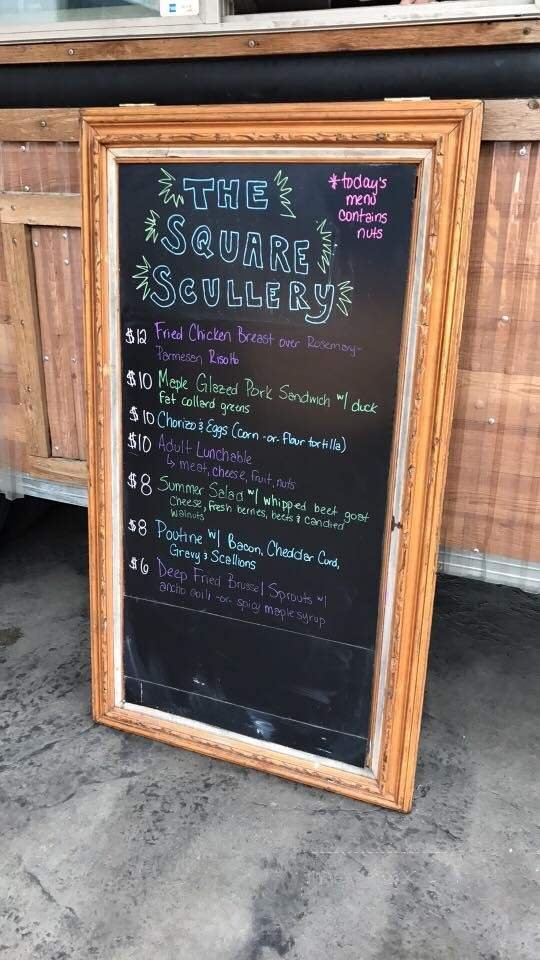 THE
SQUARE
SCULLERY
*today's
menu
contains
nuts
$12 Fried Chicken Breast over Rosemary-
Parmesan Risotto
$10 Maple Glazed Pork Sandwich w/ duck
fat collard greens
$10 Chorizo & Eggs (Corn -or- flour tortilla)
$10 Adult Lunchable
↳ meat, cheese, fruit, nuts
$8 Summer Salad w/ whipped beet goat
cheese, fresh berries, beets & candied
walnuts
$8 Poutine w/ Bacon, Cheddar Curd,
Gravy & Scallions
$6 Deep Fried Brussel Sprouts w/
ancho aoili -or- spicy maple syrup